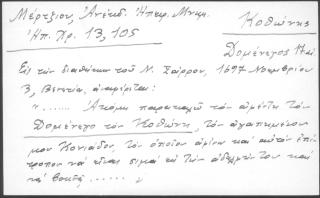 Μέρτζιου, Ἀνέκδ. Ἠπειρ. Μνημ.
Κοθώνης
Ἠπ. Χρ. 13, 105
Δομένεγος
Εἰς τὴν διαθήκην τοῦ Ν. Σάρρου, 1697 Νοεμβρίου
3, Βενετία, ἀναφέρεται:
"....... Ἀκόμη παρακαλῶ τὸν ἀφέντη τὸν
Δομένεγο τὸν Κοθώνη, τὸν ἀγαπημένον
μου Κονιάδον, τὸν ὁποῖον ἀφίνω καὶ αὐτὸν ἐπί-
τροπον νὰ εἶναι σιμὰ εἰς τὸν ἀδελφόν του καὶ
νὰ βοηθῇ ...... "